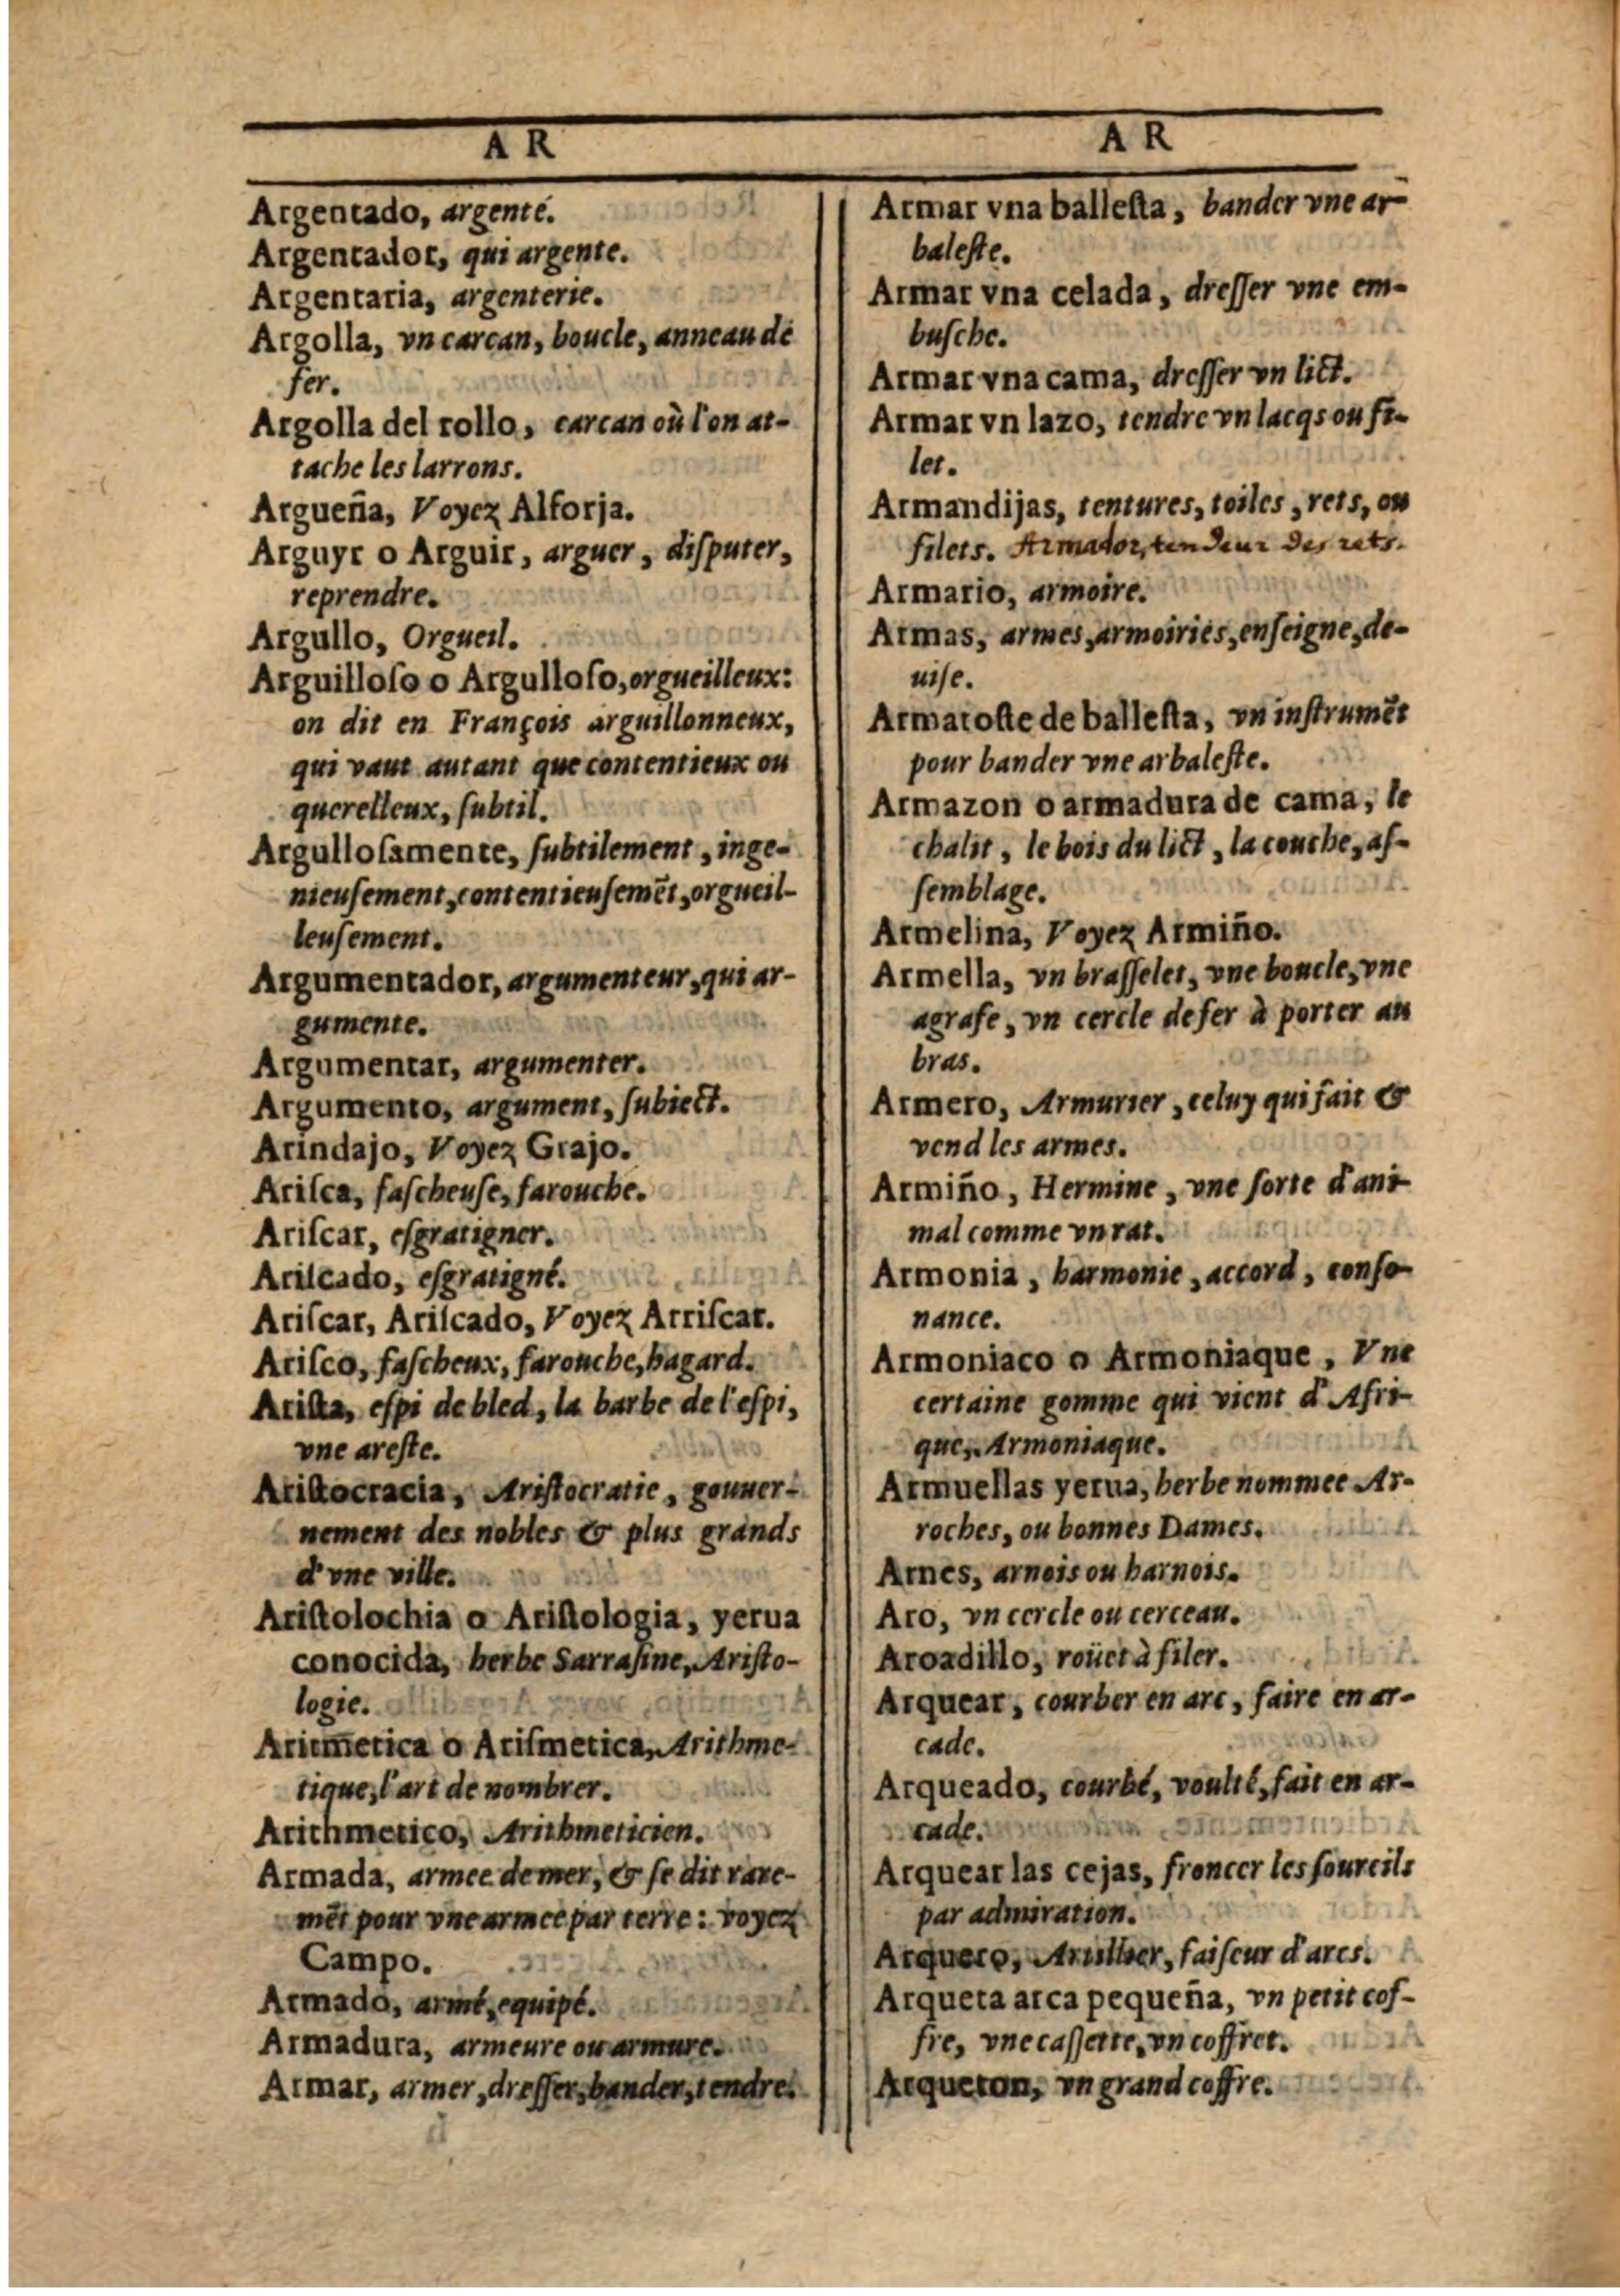 AR
Argentado, argenté.
Argentador, qui argente.
Argentaria, argenterie.
Argolla, vn carcan, boucle, anneau de
fer.
Argolla del rollo, carcan où l'on at-
tache les larrons.
Argueña, Voyez Alforja.
Arguyr o Arguir, arguer, diſputer,
reprendre.
Argullo, Orgueil.
Arguilloſo o Argulloſo, orgueilleux:
on dit en François arguillonneux,
qui vaut autant que contentieux ou
querelleux, ſubtil.
Argulloſamente, ſubtilement, inge-
nieuſement, contentieuſemẽt, orgueil-
leuſement.
Argumentador, argumenteur, qui ar-
gumente.
Argumentar, argumenter.
Argumento, argument, ſubiect.
Arindajo, Voyez Grajo.
Ariſca, faſcheuſe, farouche.
Ariſcar, eſgratigner.
Ariſcado, eſgratigné.
Ariſcar, Ariſcado, Voyez Arriſcar.
Ariſco, faſcheux, farouche, hagard.
Ariſta, eſpi de bled, la barbe de l'eſpi,
vne areſte.
Ariſtocracia, Ariſtocratie, gouuer-
nement des nobles & plus grands
d'vne ville.
Ariſtolochia o Ariſtologia, yerua
conocida, herbe Sarraſine, Ariſto-
logie.
Aritmetica o Ariſmetica, Arithme-
tique, l'art de nombrer.
Arithmetico, Arithmeticien.
Armada, armee de mer, & ſe dit rare-
mẽt pour vne armee par terre: voyez
Campo.
Armado, armé, equipé.
Armadura, armeure ou armure.
Armar, armer, dreſſer, bander, tendre.
AR
Armar vna balleſta, bander vne ar-
baleſte.
Armar vna celada, dreſſer vne em-
buſche.
Armar vna cama, dreſſer vn lict.
Armar vn lazo, tendre vn lacqs ou fi-
let.
Armandijas, tentures, toiles, rets, ou
filets. Armador, tendeur des rets.
Armario, armoire.
Armas, armes, armoiries, enſeigne, de-
uiſe.
Armatoſte de balleſta, vn inſtrumẽt
pour bander vne arbaleſte.
Armazon o armadura de cama, le
chalit, le bois du lict, la couche, aſ-
ſemblage.
Armelina, Voyez Armiño.
Armella, vn braſſelet, vne boucle, vne
agrafe, vn cercle de fer à porter au
bras.
Armero, Armurier, celuy qui fait &
vend les armes.
Armiño, Hermine, vne ſorte d'ani-
mal comme vn rat.
Armonia, harmonie, accord, conſo-
nance.
Armoniaco o Armoniaque, Vne
certaine gomme qui vient d'Afri-
que, Armoniaque.
Armuellas yerua, herbe nommee Ar-
roches, ou bonnes Dames.
Arnes, arnois ou harnois.
Aro, vn cercle ou cerceau.
Aroadillo, roüet à filer.
Arquear, courber en arc, faire en ar-
cade.
Arqueado, courbé, voulté, fait en ar-
cade.
Arquear las cejas, froncer les ſourcils
par admiration.
Arquero, Artillier, faiſeur d'arcs.
Arqueta arca pequeña, vn petit cof-
fre, vne caſſette, vn coffret.
Arqueton, vn grand coffre.